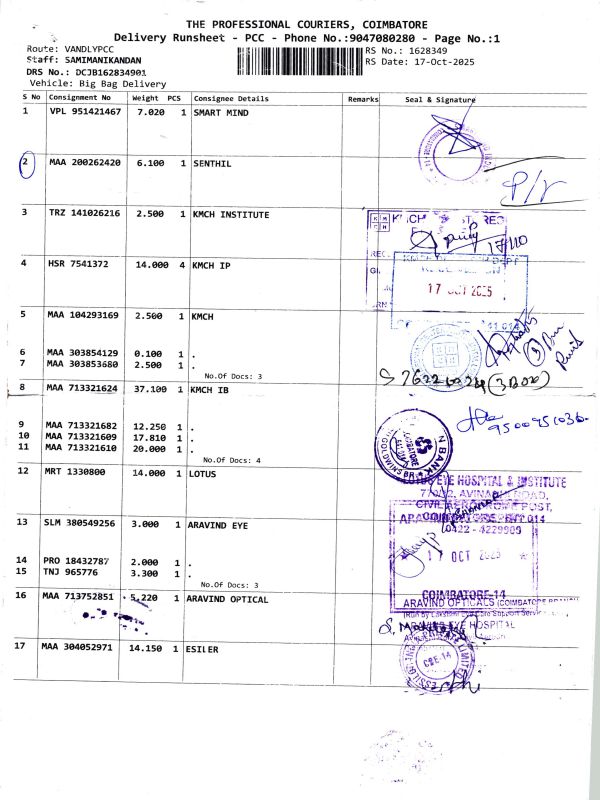 THE PROFESSIONAL COURIERS, COIMBATORE
Delivery Runsheet - PCC - Phone No.:9047080280 - Page No.:1
Route: VANDLYPCC
Staff: SAMIMANIKANDAN
DRS No.: DCJB162834901
Vehicle: Big Bag Delivery
RS No.: 1628349
RS Date: 17-Oct-2025
S No Consignment No Weight PCS Consignee Details Remarks Seal & Signature
1 VPL 951421467 7.020 1 SMART MIND
2 MAA 200262420 6.100 1 SENTHIL
3 TRZ 141026216 2.500 1 KMCH INSTITUTE
17/10
4 HSR 7541372 14.000 4 KMCH IP
17 OCT 2025
5 MAA 104293169 2.500 1 KMCH
6 MAA 303854129 0.100 1 .
7 MAA 303853680 2.500 1 .
No.Of Docs: 3
8 MAA 713321624 37.100 1 KMCH IB
9 MAA 713321682 12.250 1 .
10 MAA 713321609 17.810 1 .
11 MAA 713321610 20.000 1 .
No.Of Docs: 4
GOLDWINS BR.
N BANK
COIMBATORE
12 MRT 1330800 14.000 1 LOTUS
LOTUS EYE HOSPITAL & INSTITUTE
770/12, AVINASHI ROAD,
CIVIL AERODROME POST,
0422 - 4229999
13 SLM 380549256 3.000 1 ARAVIND EYE
17 OCT 2025
14 PRO 18432787 2.000 1 .
15 TNJ 965776 3.300 1 .
No.Of Docs: 3
COIMBATORE-14
16 MAA 713752851 5.220 1 ARAVIND OPTICAL
ARAVIND OPTICALS (COIMBATORE BRANCH)
ARAVIND EYE HOSPITAL
17 MAA 304052971 14.150 1 ESILER
CBE-14